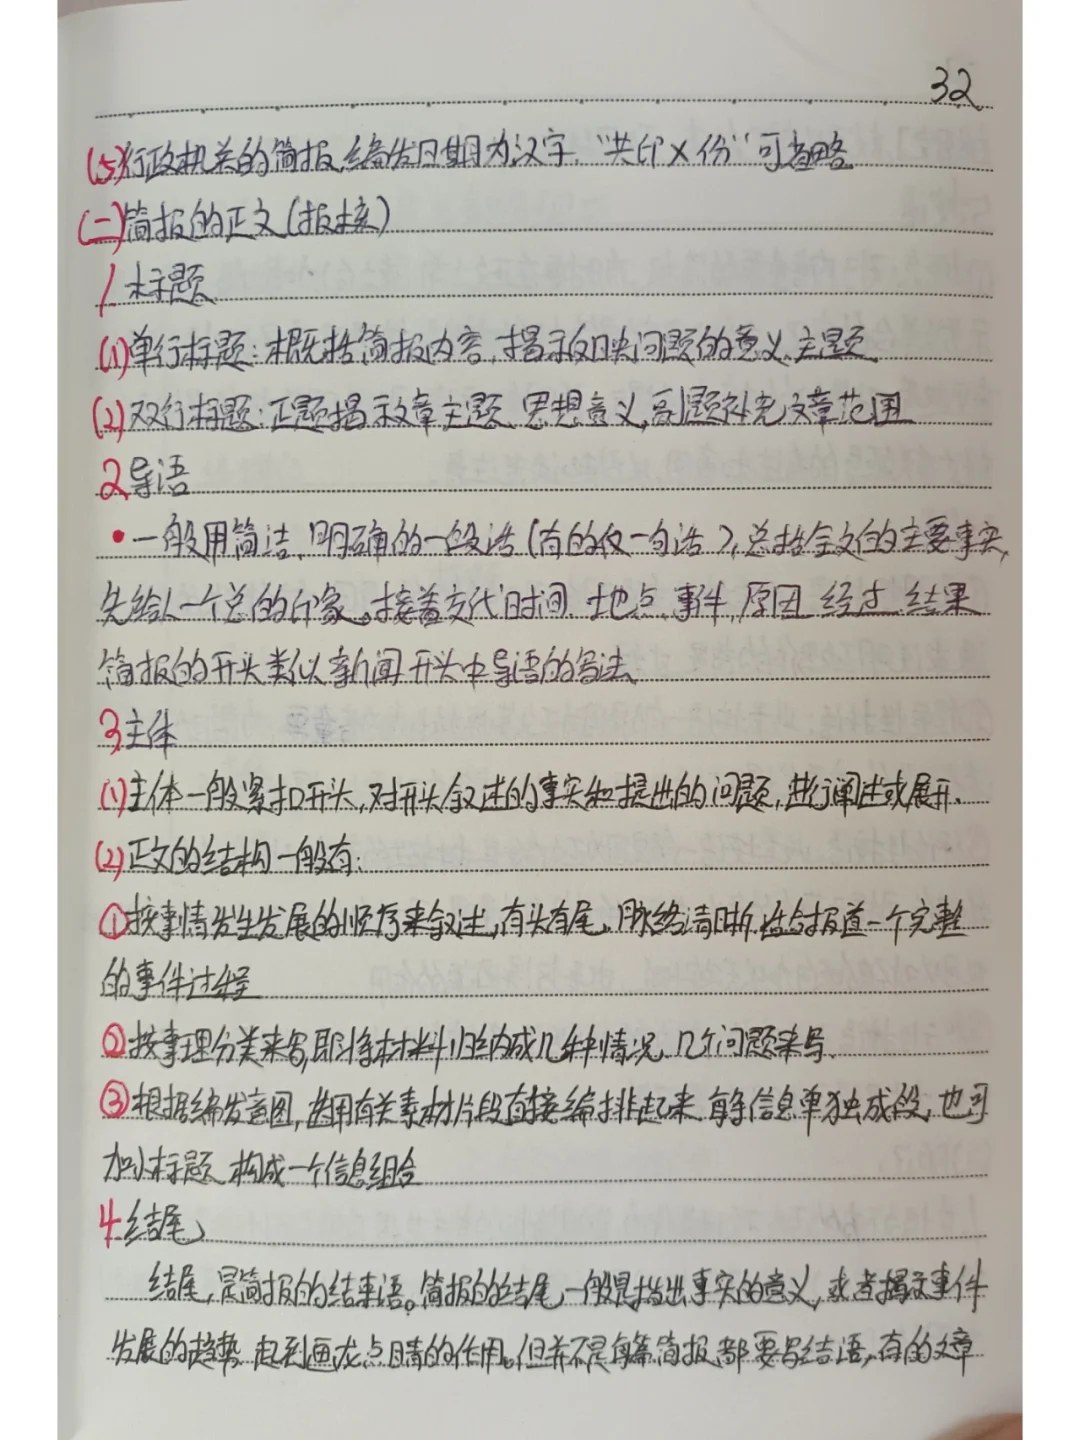 32
(5)行政机关的简报,编发日期为汉字,“共印X份”可省略
(二)简报的正文(报核)
1标题
(1)单行标题:概括简报内容,揭示反映问题的意义、主题
(2)双行标题:正题揭示文章主题、思想意义,副题补充文章范围
2导语
·一般用简洁、明确的一段话(有的仅一句话),总括全文的主要事实,
先给人一个总的印象。接着交代时间、地点、事件、原因、经过、结果
简报的开头类似新闻开头中导语的写法、
3,主体
(1)主体一般紧扣开头,对开头叙述的事实和提出的问题,进行阐述或展开、
(2)正文的结构一般有:
①按事情发生发展的顺序来叙述,有头有尾、脉络清晰,适合报道一个完整
的事件过程
②按事理分类来写,即将材料归纳成几种情况、几个问题来写、
③根据编发意图,选用有关素材片段直接编排起来 每条信息单独成段,也可
加小标题 构成一个信息组合
4.结尾
结尾,是简报的结束语。简报的结尾一般是指出事实的意义,或者揭示事件
发展的趋势 起到画龙点睛的作用。但并不是每篇简报都要写结语,有的文章